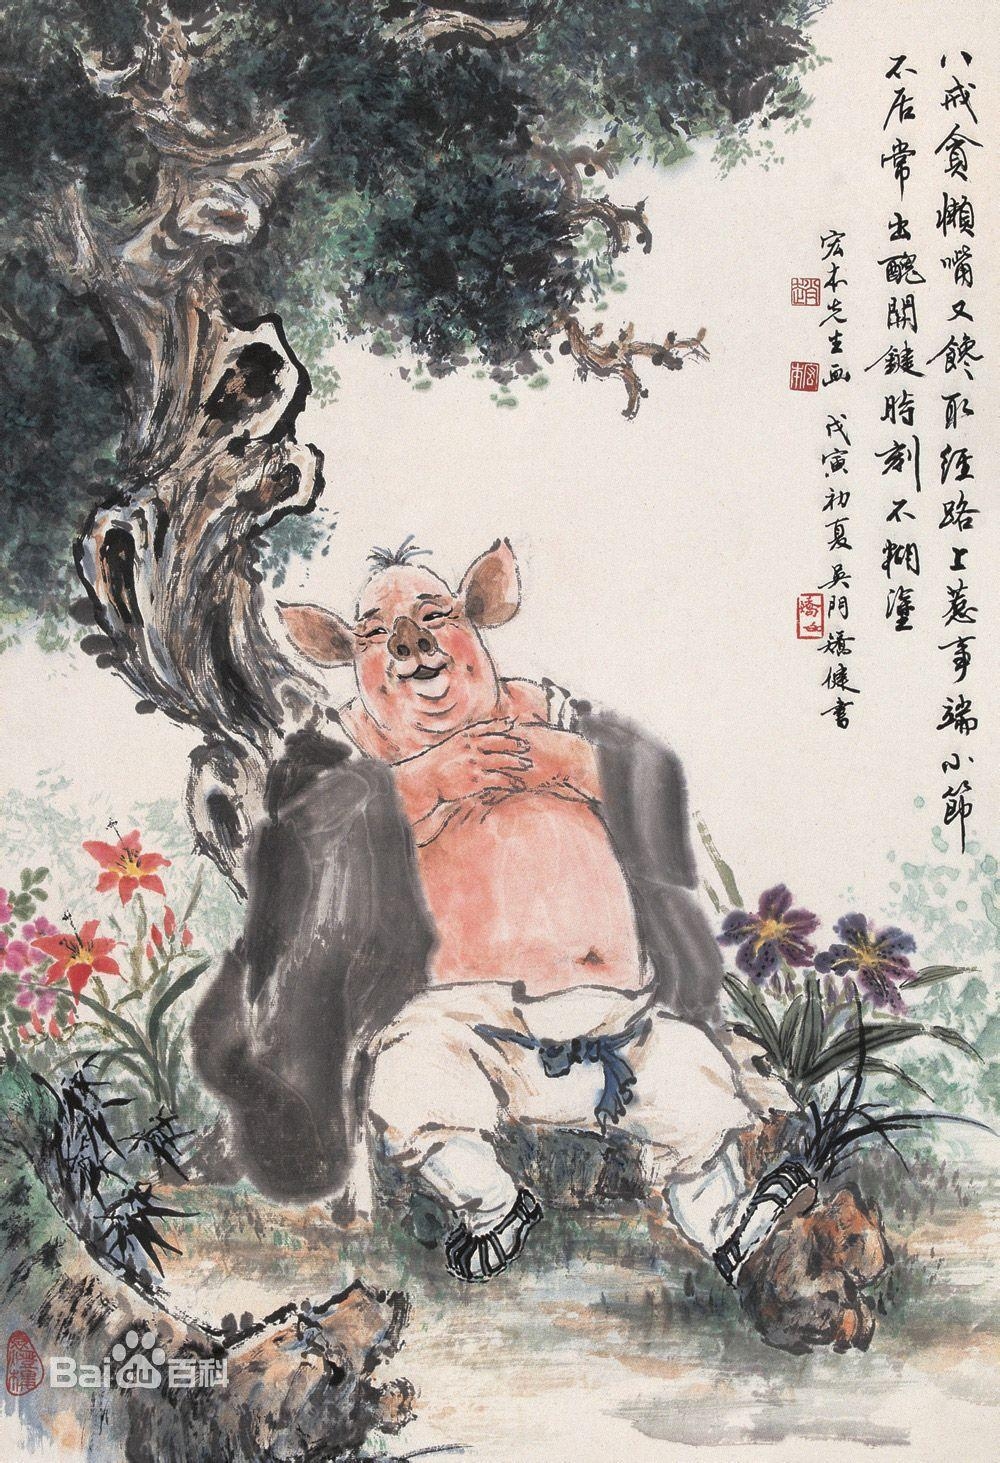 八戒貪懶嘴又馋取经路上惹事端小節
不居常出醜關鍵時刻不糊塗
宏本先生画 戊寅初夏吴門矯健書
Bai百科